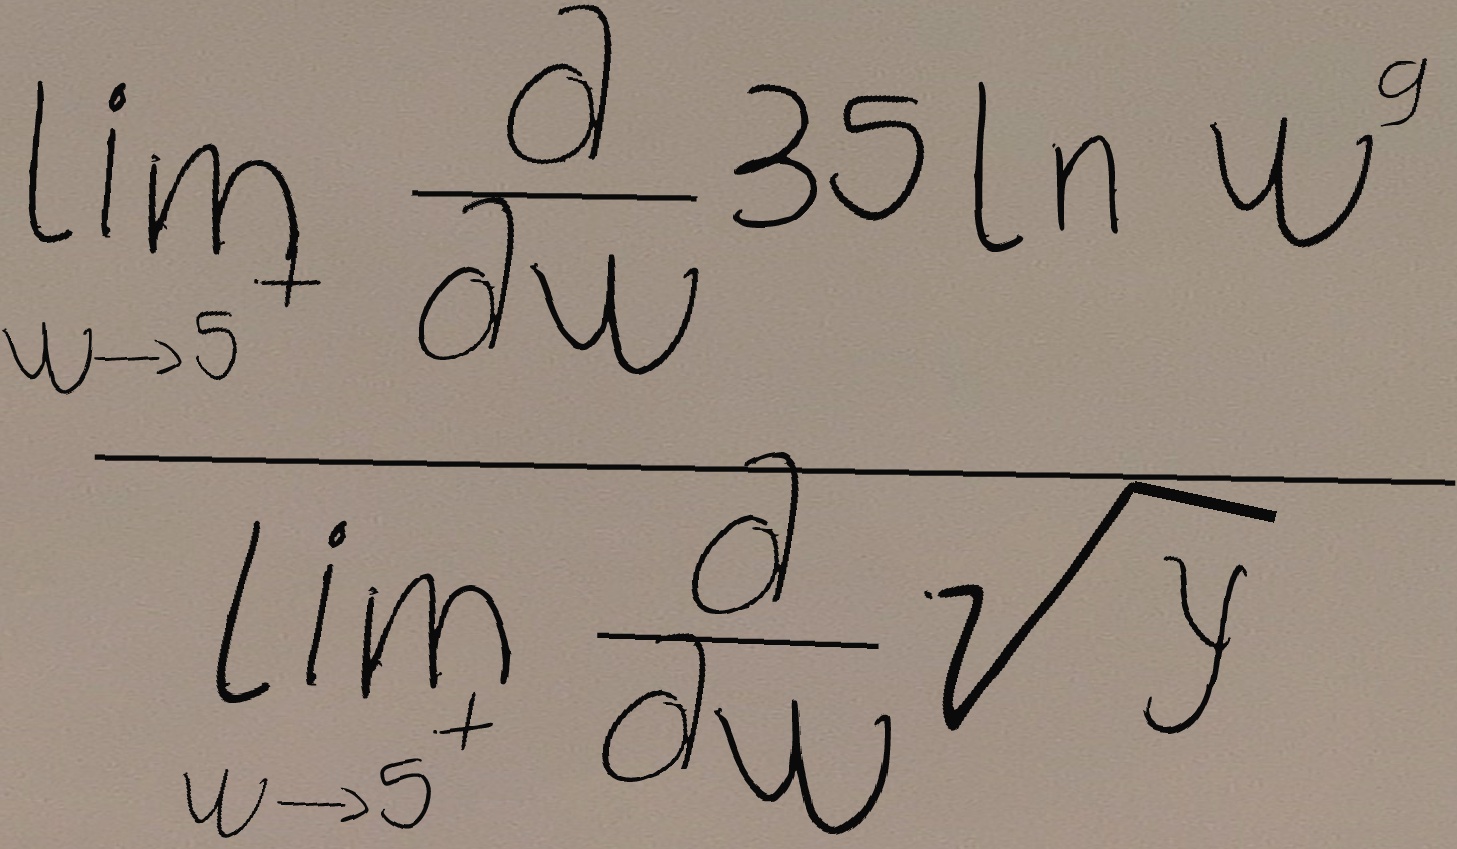 \frac{\lim_{w \to 5^+} \frac{d}{dw} 35 \ln w^9}{\lim_{w \to 5^+} \frac{d}{dw} \sqrt{y}}